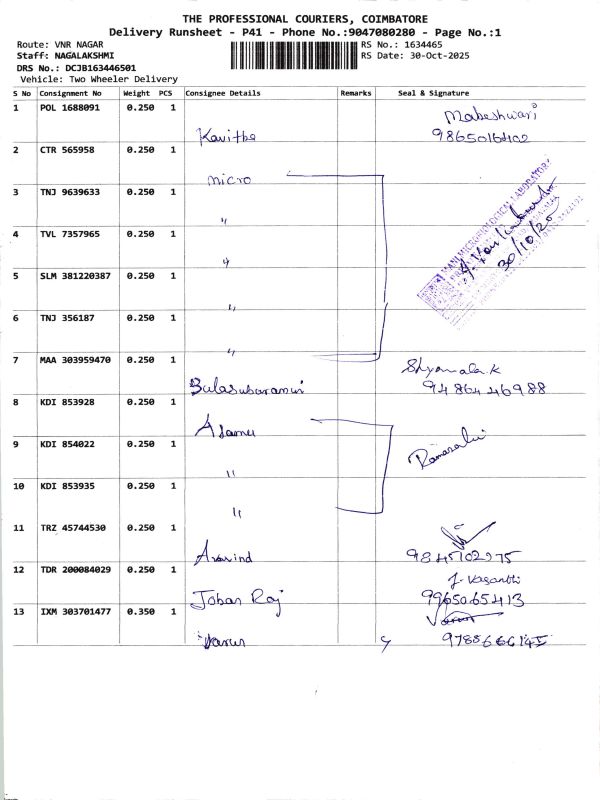 THE PROFESSIONAL COURIERS, COIMBATORE
Delivery Runsheet - P41 - Phone No.:9047080280 - Page No.:1
Route: VNR NAGAR RS No.: 1634465
Staff: NAGALAKSHMI RS Date: 30-Oct-2025
DRS No.: DCJB163446501
Vehicle: Two Wheeler Delivery
S No Consignment No Weight PCS Consignee Details Remarks Seal & Signature
1 POL 1688091 0.250 1 Maheshwari
Kavitha
2 CTR 565958 0.250 1
micro
3 TNJ 9639633 0.250 1
"
4 TVL 7357965 0.250 1
"
30/10/25
5 SLM 381220387 0.250 1
"
6 TNJ 356187 0.250 1
"
7 MAA 303959470 0.250 1 Shyamala.K
Balasubaramani 9486446988
8 KDI 853928 0.250 1
9 KDI 854022 0.250 1
"
10 KDI 853935 0.250 1
"
11 TRZ 45744530 0.250 1
Aravind 9845102975
12 TDR 200084029 0.250 1 J. Vasanthi
Joban Raj 9965065413
13 IXM 303701477 0.350 1 Varun
Varun 9788666145